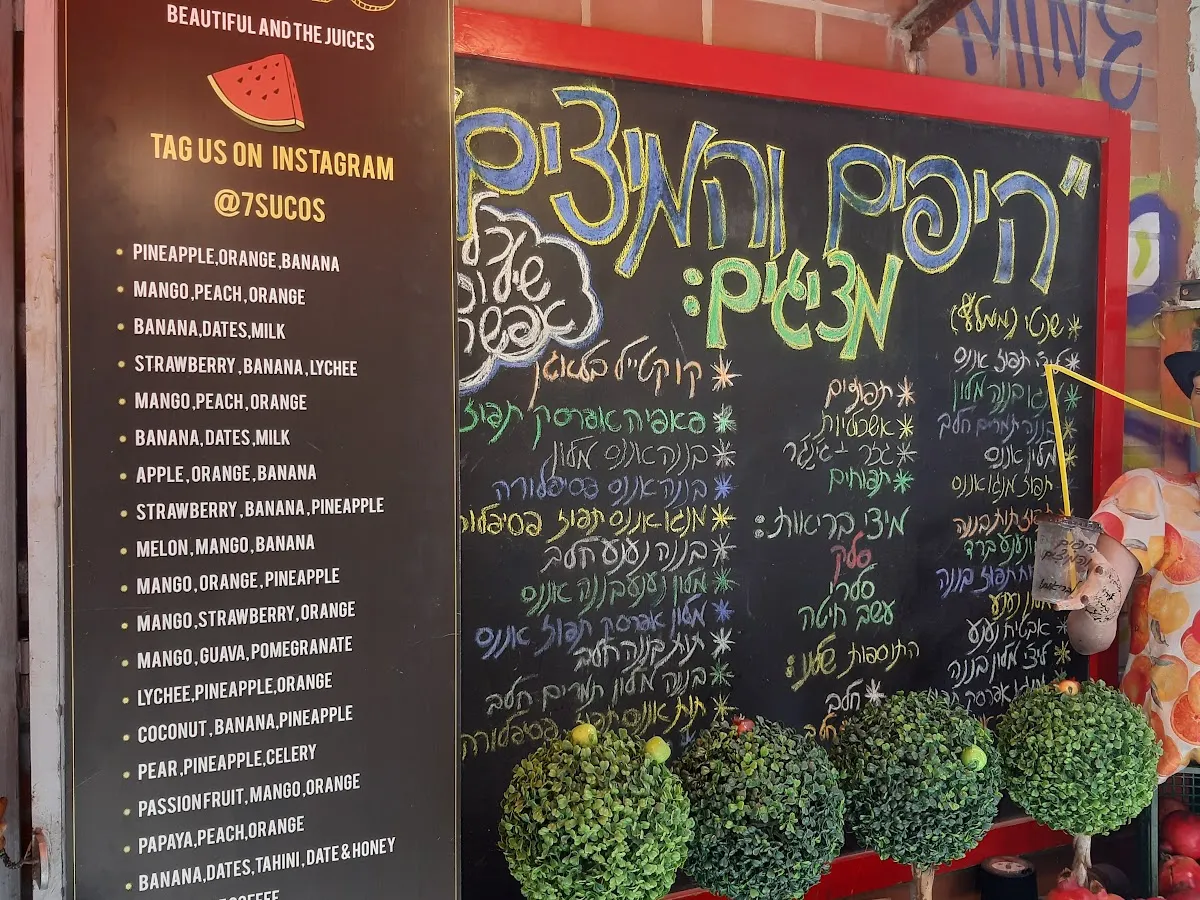 BEAUTIFUL AND THE JUICES
TAG US ON INSTAGRAM
@7SUCOS
• PINEAPPLE,ORANGE,BANANA
• MANGO,PEACH,ORANGE
• BANANA,DATES,MILK
• STRAWBERRY,BANANA,LYCHEE
• MANGO,PEACH,ORANGE
• BANANA,DATES,MILK
• APPLE,ORANGE,BANANA
• STRAWBERRY,BANANA,PINEAPPLE
• MELON,MANGO,BANANA
• MANGO,ORANGE,PINEAPPLE
• MANGO,STRAWBERRY,ORANGE
• MANGO,GUAVA,POMEGRANATE
• LYCHEE,PINEAPPLE,ORANGE
• COCONUT,BANANA,PINEAPPLE
• PEAR,PINEAPPLE,CELERY
• PASSIONFRUIT,MANGO,ORANGE
• PAPAYA,PEACH,ORANGE
• BANANA,DATES,TAHINI,DATE & HONEY
COFFEE
MINE
"היפים והמיצים
מציגים:
* תפוזים
* אשכוליות
* גזר + ג'ינג'ר
* תפוחים
מיצי בריאות:
סלק
סלרי
עשב חיטה
התוספות שלנו:
* חלב
* פאפיה אפרסק תפוז
* בננה אננס מלון
* בננה אננס פסיפלורה
* מנגו אננס תפוז פסיפלורה
* בננה נענע חלב
* מלון נענע בננה אננס
* מלון אפרסק תפוז אננס
* תות בננה חלב
* בננה מלון תמרים חלב
* תות אננס תפוז פסיפלורה
תפוז אננס
בננה מלון
תמרים חלב
מלון אננס
תפוז מנגו אננס
תות בננה
נענע ברד
תפוז בננה
נענע
* אבטיח נענע
* ליצ'י מלון בננה
היפים
והמיצים